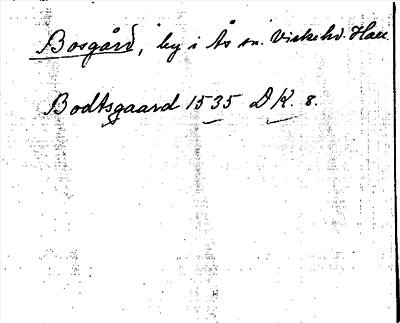 Bosgård, by i Ås sn. Viskehd. Hall.
Bodtsgaard 1535 DK. 8.